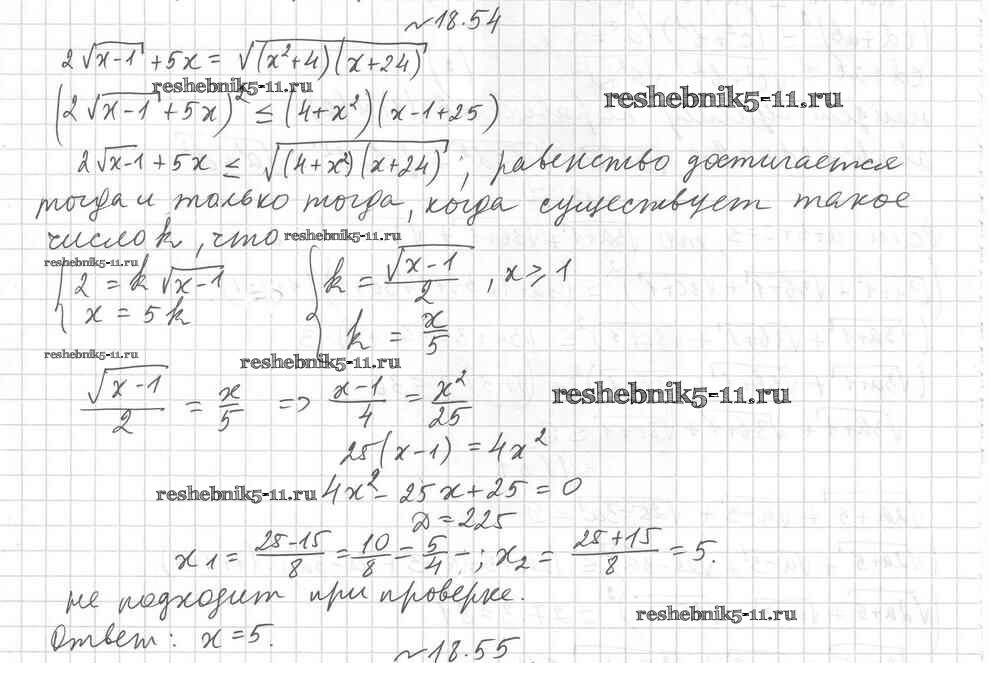 №18.54
2√(x-1) + 5x = √((x²+4)(x+24))
reshebnik5-11.ru
reshebnik5-11.ru
(2√(x-1) + 5x)² ≤ (4+x²)(x-1+25)
2√(x-1) + 5x ≤ √((4+x²)(x+24)) ; равенство достигается
тогда и только тогда, когда существует такое
число k, что
reshebnik5-11.ru
reshebnik5-11.ru
{ 2 = k√(x-1) { k = √(x-1)/2 , x ≥ 1
x = 5k k = x/5
reshebnik5-11.ru
reshebnik5-11.ru
√(x-1)/2 = x/5 => (x-1)/4 = x²/25
reshebnik5-11.ru
25(x-1) = 4x²
reshebnik5-11.ru
4x² - 25x + 25 = 0
D = 225
x₁ = (25-15)/8 = 10/8 = 5/4 - ; x₂ = (25+15)/8 = 5.
не подходит при проверке.
reshebnik5-11.ru
Ответ: x = 5.
№18.55